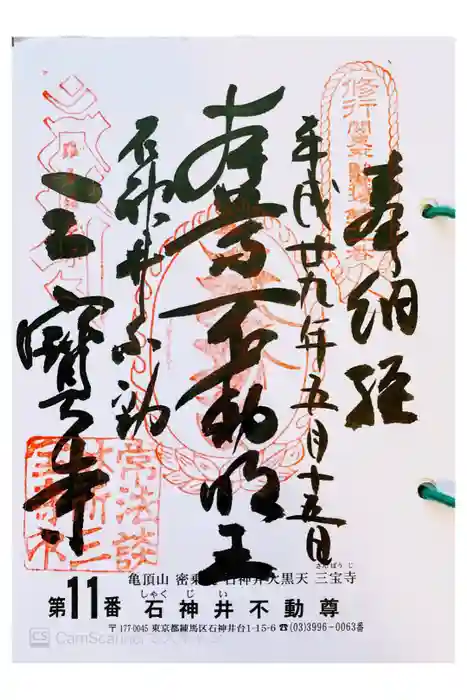 奉納経
平成廿九年五月十五日
本尊不動明王
石神井不動
三寶寺
修行
常法談
さんぽうじ
亀頂山 密乗 石神井大黒天 三宝寺
しゃくじい
第11番 石神井不動尊
〒177-0045 東京都練馬区石神井台1-15-6 ☎(03)3996-0063番
CS CamScanner